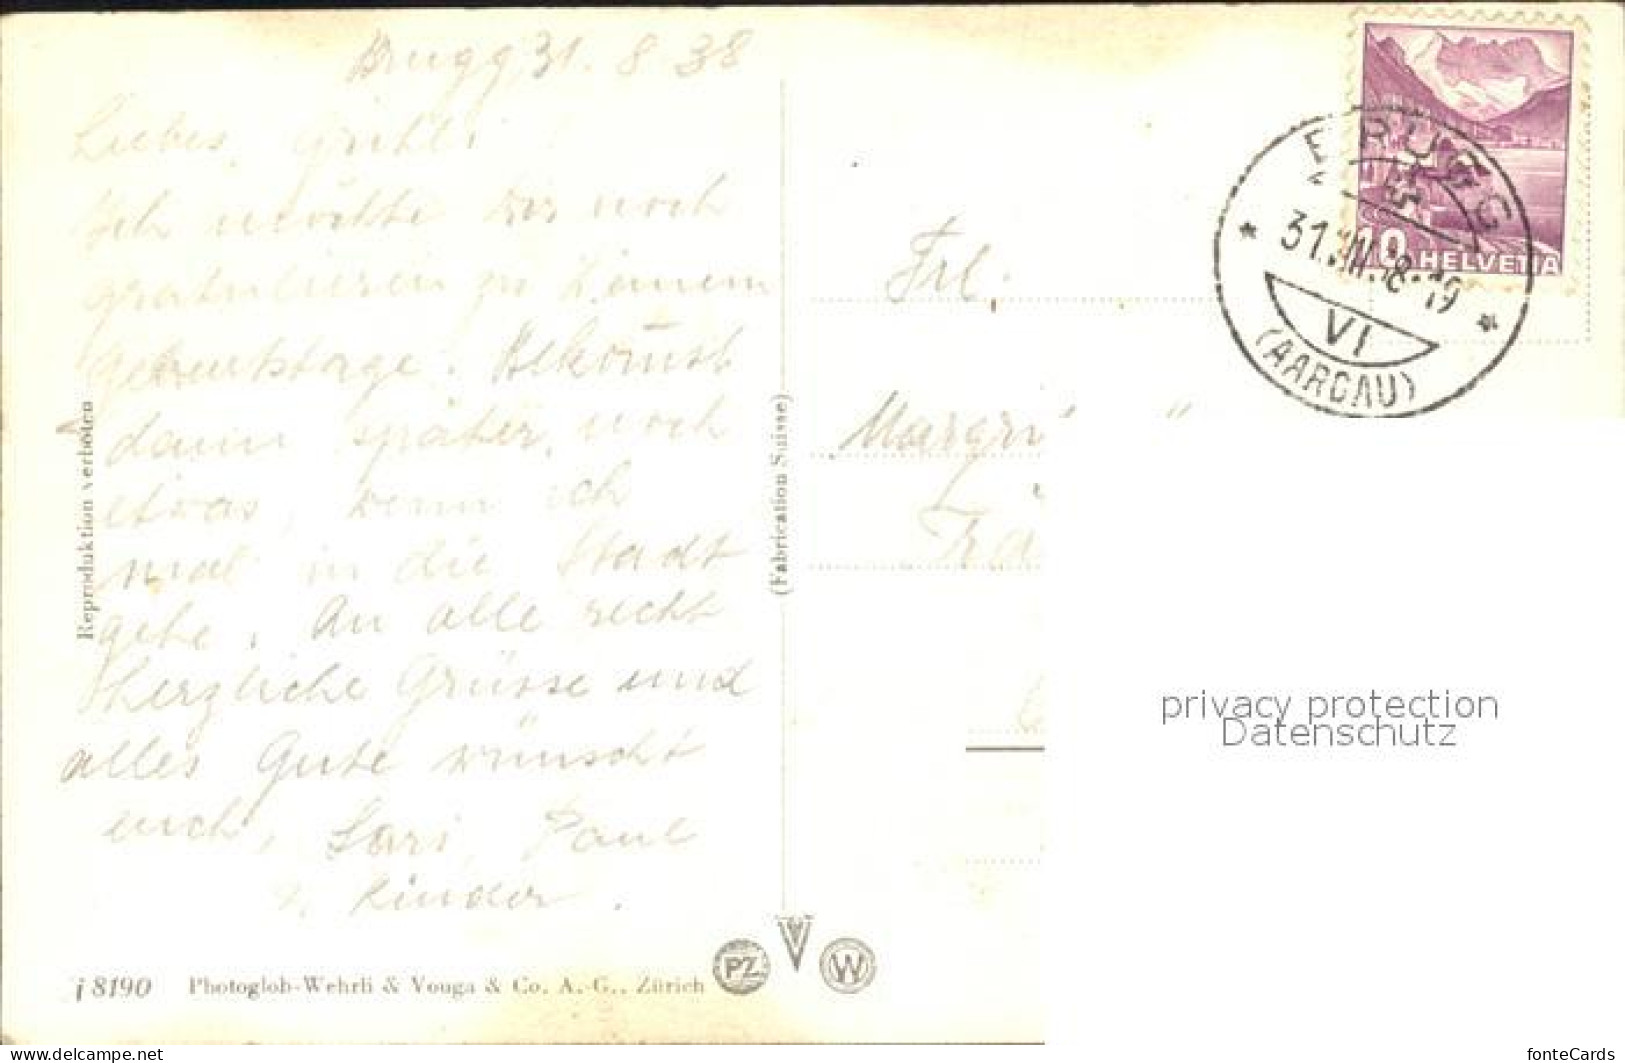 Brugg 31. 8 38
Liebes Gritli!
Ich möchte dir noch
gratulieren zu Deinem
Geburtstage. Bekomst
dann später, noch
etwas, wenn ich
mal in die Stadt
gehe. An alle recht
herzliche Grüsse und
alles Gute wünscht
euch, Paul
Kinder.
Reproduktion verboten
(Fabrication Suisse)
j 8190 Photoglob-Wehrli & Vouga & Co. A.-G., Zürich
PZ V W
Frl.
Margri
BRUGG
31.VIII.38-19
VI
(AARGAU)
10 HELVETIA
privacy protection
Datenschutz
www.delcampe.net
fonteCards